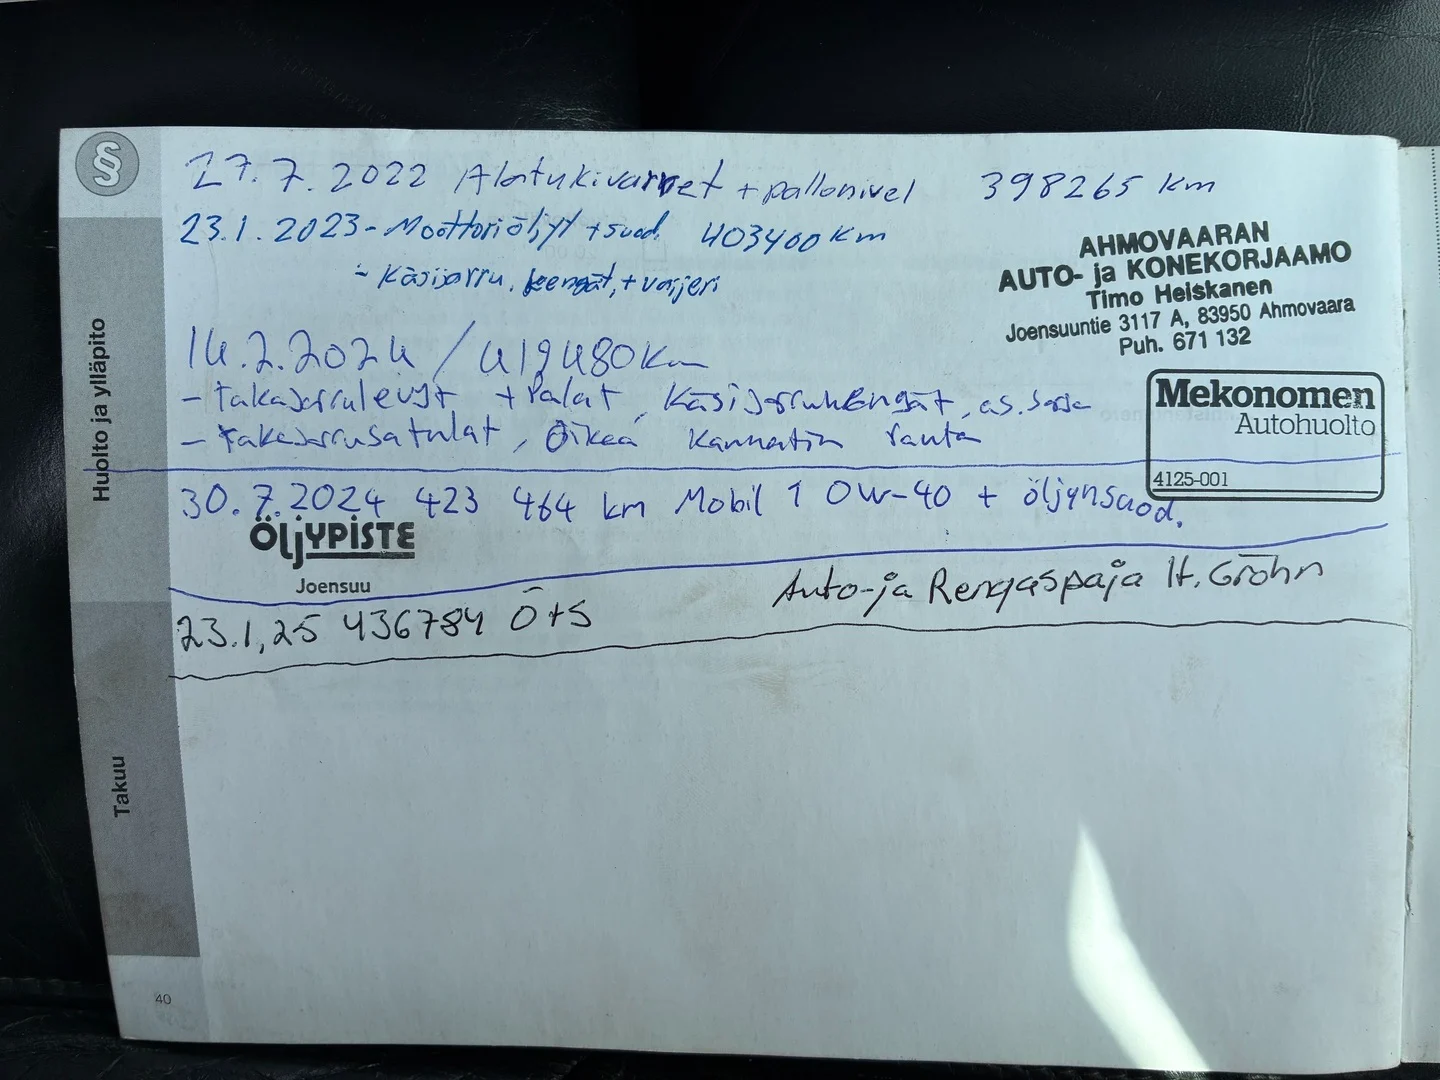 27.7.2022 Alatukivarret + pallonivel 398265 km
23.1.2023 - Moottoriöljyt + suod. 403400 km
- Käsijarru, kengät, + vaijeri
AHMOVAARAN
AUTO- ja KONEKORJAAMO
Timo Heiskanen
Joensuuntie 3117 A, 83950 Ahmovaara
Puh. 671 132
14.2.2024 / 419480 km
- takajarrulevyt + Palat, Käsijarrukengät, as. sarja
- takajarrusatulat, Oikea Kannatin rauta
Mekonomen
Autohuolto
4125-001
30.7.2024 423 464 km Mobil 1 0W-40 + öljynsuod.
ÖljYPISTE
Joensuu
Auto-ja Rengaspaja H. Gröhn
23.1,25 436784 Ö+S
Huolto ja ylläpito
Takuu
40